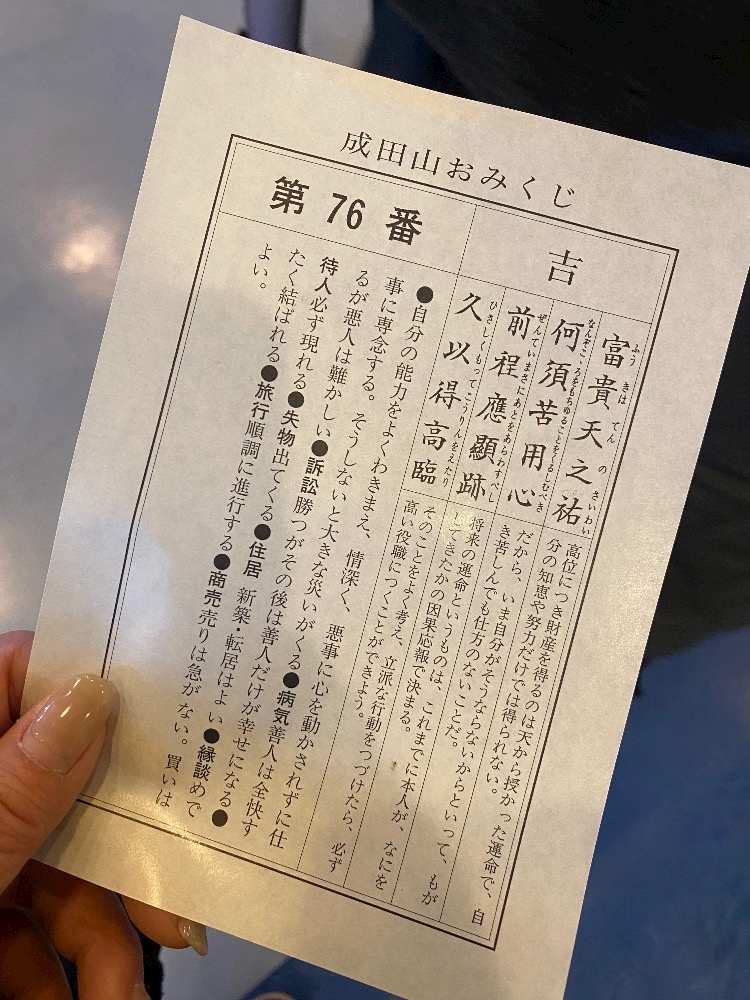 成田山おみくじ
第 76 番
吉
富貴天之祐
ふうきはてんのさいわい
何須苦用心
なんぞこゝろをもちゆることをくるしむべき
前程應顯跡
ぜんていまさにあとをあらわすべし
久以得高臨
ひさしくもってこうりんをえたり
高位につき財産を得るのは天から授かった運命で、自
分の知恵や努力だけでは得られない。
だから、いま自分がそうならないからといって、もが
き苦しんでも仕方のないことだ。
将来の運命というものは、これまでに本人が、なにを
してきたかの因果応報で決まる。
そのことをよく考え、立派な行動をつづけたら、必ず
高い役職につくことができよう。
●自分の能力をよくわきまえ、情深く、悪事に心を動かされずに仕
事に専念する。そうしないと大きな災いがくる●病気善人は全快す
るが悪人は難かしい●訴訟勝つがその後は善人だけが幸せになる●
待人必ず現れる●失物出てくる●住居 新築・転居はよい●縁談めで
たく結ばれる●旅行順調に進行する●商売売りは急がない。買いは
よい。